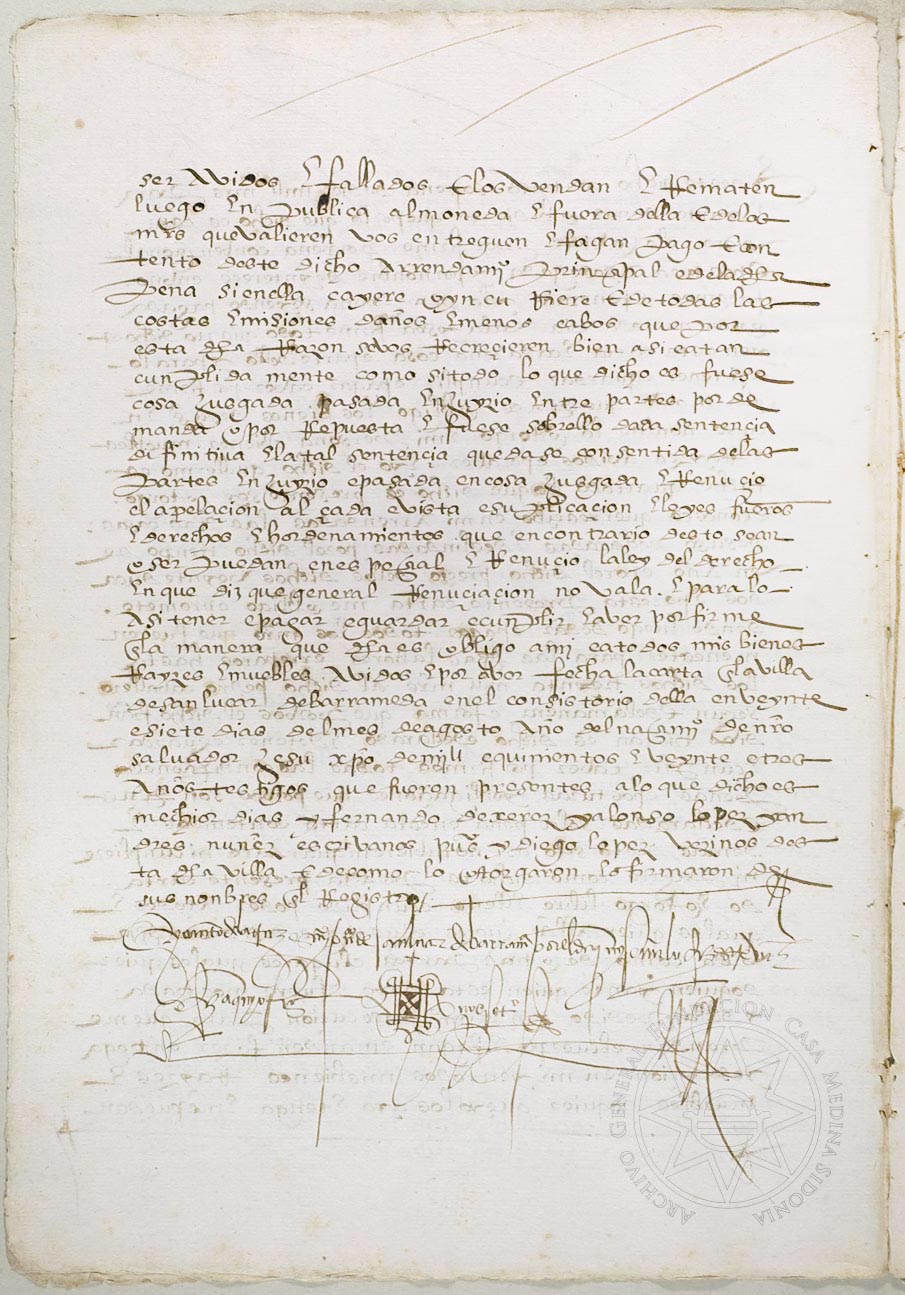 ser avidos e fallados e los vendan e Rematen
luego en publica almoneda e fuera della e delos
mrs que valieren vos entreguen e fagan pago e con
tento deste dicho arrendamio prinçipal e dela dha
pena si enella cayere o yncurriere e de todas las
costas e misiones daños e menos cabos que por
esta dha Razon se vos Recreçieren bien asi e a tan
cunplida mente como si todo lo que dicho es fuese
cosa Juzgada pasada en Juyzio entre partes por de
manda e por Repuesta e fuese sobrello dada sentençia
difinitiva e la tal sentençia quedase consentida delas
partes en Juyzio e pasada en cosa Juzgada e Renuçio
el apelaçion alçada e vista e suplicaçion e leyes fueros
e derechos e hordenamientos que en contrario desto sean
o ser puedan en espeçial e Renuçio la ley del derecho
en que diz que general Renuçiaçion no vala e para lo
asi tener e pagar e guardar e cunplir e aver por firme
en la manera que dha es obligo a mi e a todos mis bienes
Rayzes e muebles avidos e por aver fecha la carta en la villa
de san lucar de barrameda en el consistorio della en veynte
e siete dias del mes de agosto año del nasçimio de nro
salvador Jesu xpo de mill e quinientos e veynte e tres
años testigos que fueron presentes a lo que dicho es
melchior dias y fernando de xerez y alonso lopez y an
dres nuñez escrivanos pucos y diego lopez vezinos des
ta dha villa e de como lo otorgaron lo firmaron de
sus nonbres en el Registro
ARCHIVO GENERAL FUNDACION CASA MEDINA SIDONIA